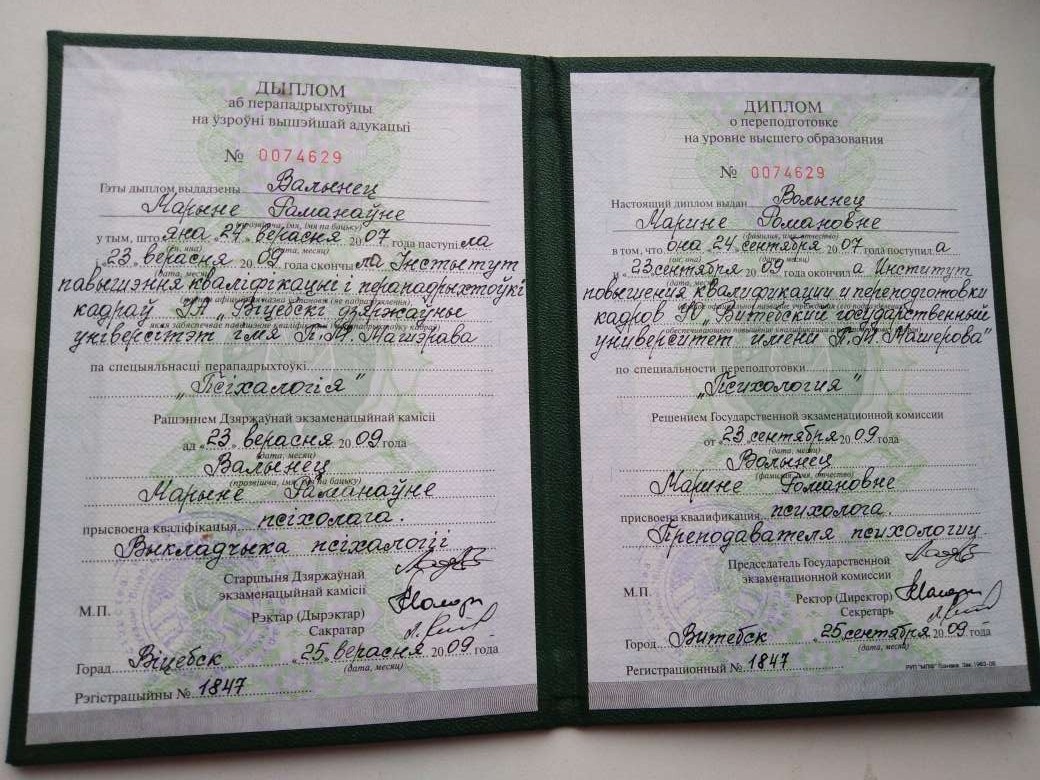 ДЫПЛОМ
аб перападрыхтоўцы
на ўзроўні вышэйшай адукацыі
№ 0074629
Гэты дыплом выдадзены Валынец
Марыне Раманаўне
(прозвішча, імя, імя па бацьку)
у тым, што яна 24 верасня 2007 года паступіла
(ён, яна) (дата, месяц)
і 23 верасня 2009 года скончыла Інстытут
(дата, месяц)
павышэння кваліфікацыі і перападрыхтоўкі
кадраў УА „Віцебскі дзяржаўны
універсітэт імя П.М. Машэрава
па спецыяльнасці перападрыхтоўкі
„Псіхалогія"
Рашэннем Дзяржаўнай экзаменацыйнай камісіі
ад „23" верасня 2009 года
(дата, месяц)
Валынец
(прозвішча, імя, імя па бацьку)
Марыне Раманаўне
прысвоена кваліфікацыя псіхолага.
Выкладчыка псіхалогіі
Старшыня Дзяржаўнай
экзаменацыйнай камісіі
М.П.
Рэктар (Дырэктар)
Сакратар
Горад Віцебск „25" верасня 2009 года
(дата, месяц)
Рэгістрацыйны № 1847
ДИПЛОМ
о переподготовке
на уровне высшего образования
№ 0074629
Настоящий диплом выдан Волынец
Марине Романовне
(фамилия, имя, отчество)
в том, что она 24 сентября 2007 года поступила
(он, она) (дата, месяц)
и „23 сентября 2009 года окончила Институт
(дата, месяц)
повышения квалификации и переподготовки
кадров УО „Витебский государственный
университет имени П.М. Машерова"
по специальности переподготовки
„Психология"
Решением Государственной экзаменационной комиссии
от „23 сентября 2009 года
(дата, месяц)
Волынец
(фамилия, имя, отчество)
Марине Романовне
присвоена квалификация психолога.
Преподавателя психологии
Председатель Государственной
экзаменационной комиссии
М.П.
Ректор (Директор)
Секретарь
Город Витебск „25 сентября 2009 года
(дата, месяц)
Регистрационный № 1847